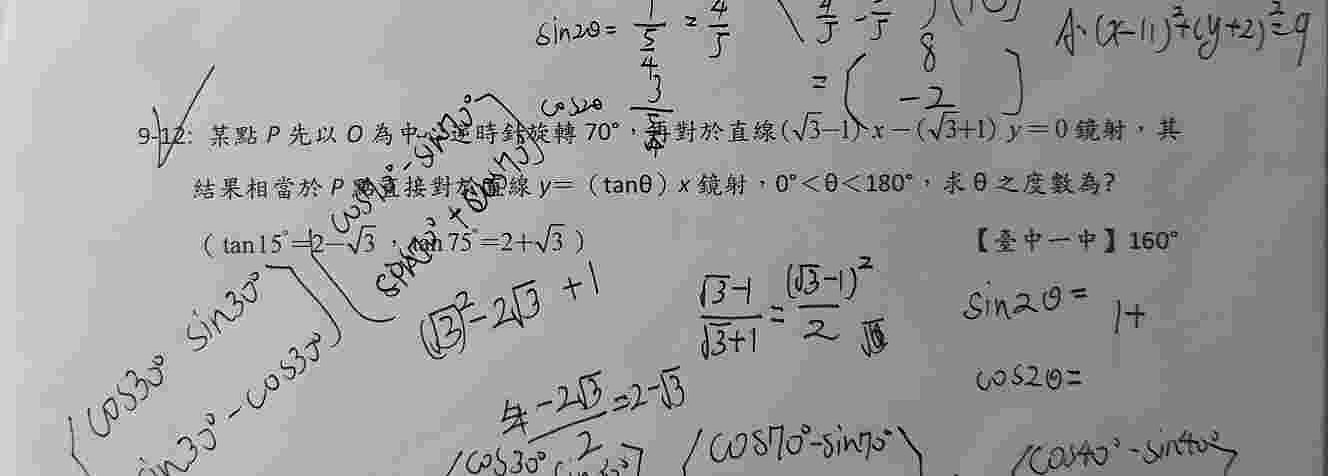 sin2θ = 1/(5/4) = 4/5
A: (x-11)²+(y+2)²=9
= (8
-2)
cos2θ 3/(5/4)
9-12: 某點 P 先以 O 為中心逆時針旋轉 70°，再對於直線(√3−1) x−(√3+1) y＝0 鏡射，其
結果相當於 P 點直接對於直線 y＝（tanθ）x 鏡射，0°＜θ＜180°，求 θ 之度數為?
（tan15°=2−√3，tan75°=2+√3）
【臺中一中】160°
cos70° - sin70°
sin70° + cos70°
(√3)²-2√3 +1
(√3-1)/(√3+1) = (√3-1)²/2
sin2θ= 1+
cos2θ=
cos30° sin30°
sin30° - cos30°
(4-2√3)/2 = 2-√3
(cos30° sin30°)
(cos70° -sin70°)
(cos40° - sin40°)